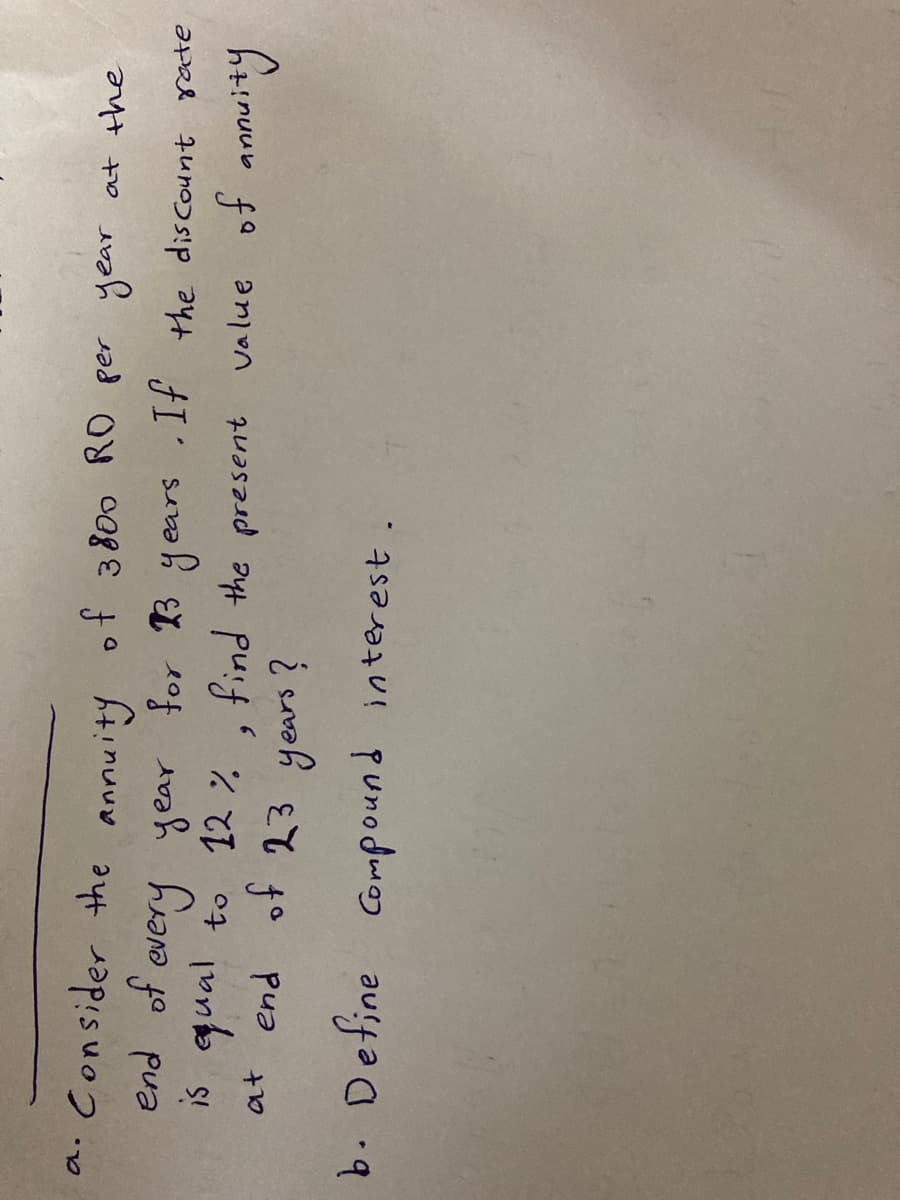 a. Consider the annuity of 3800 RO per year at the
end of every year for 23 years. If the discount rate
is equal to 12%, find the present value of annuity
at end of 23 years?
b. Define Compound interest.